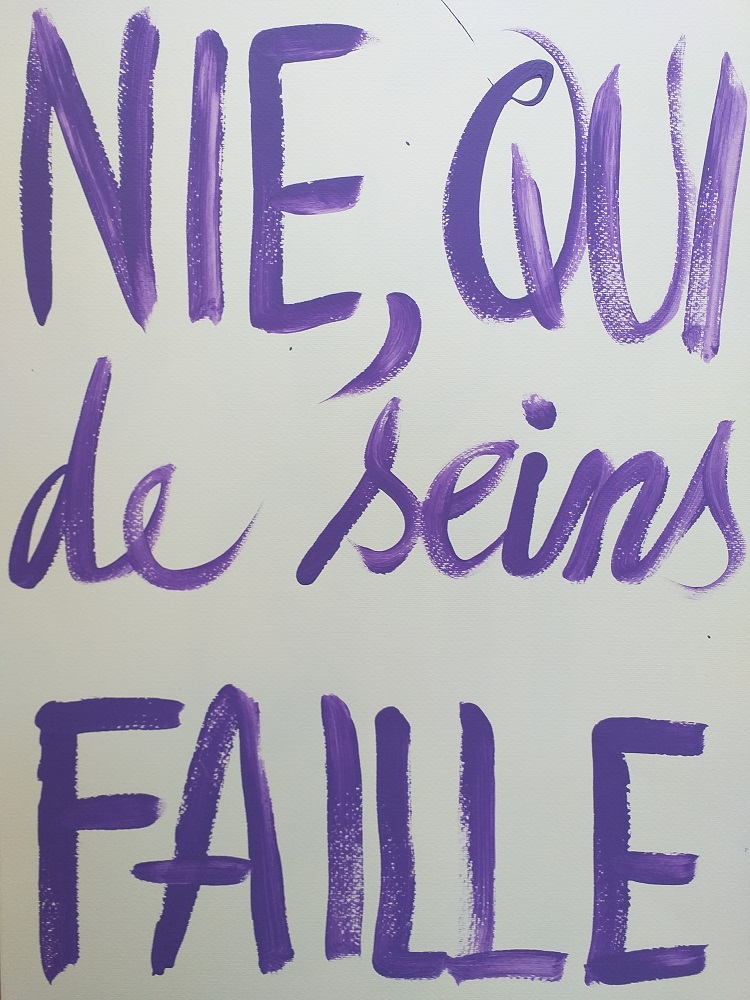 NIE, QUI
de seins
FAILLE